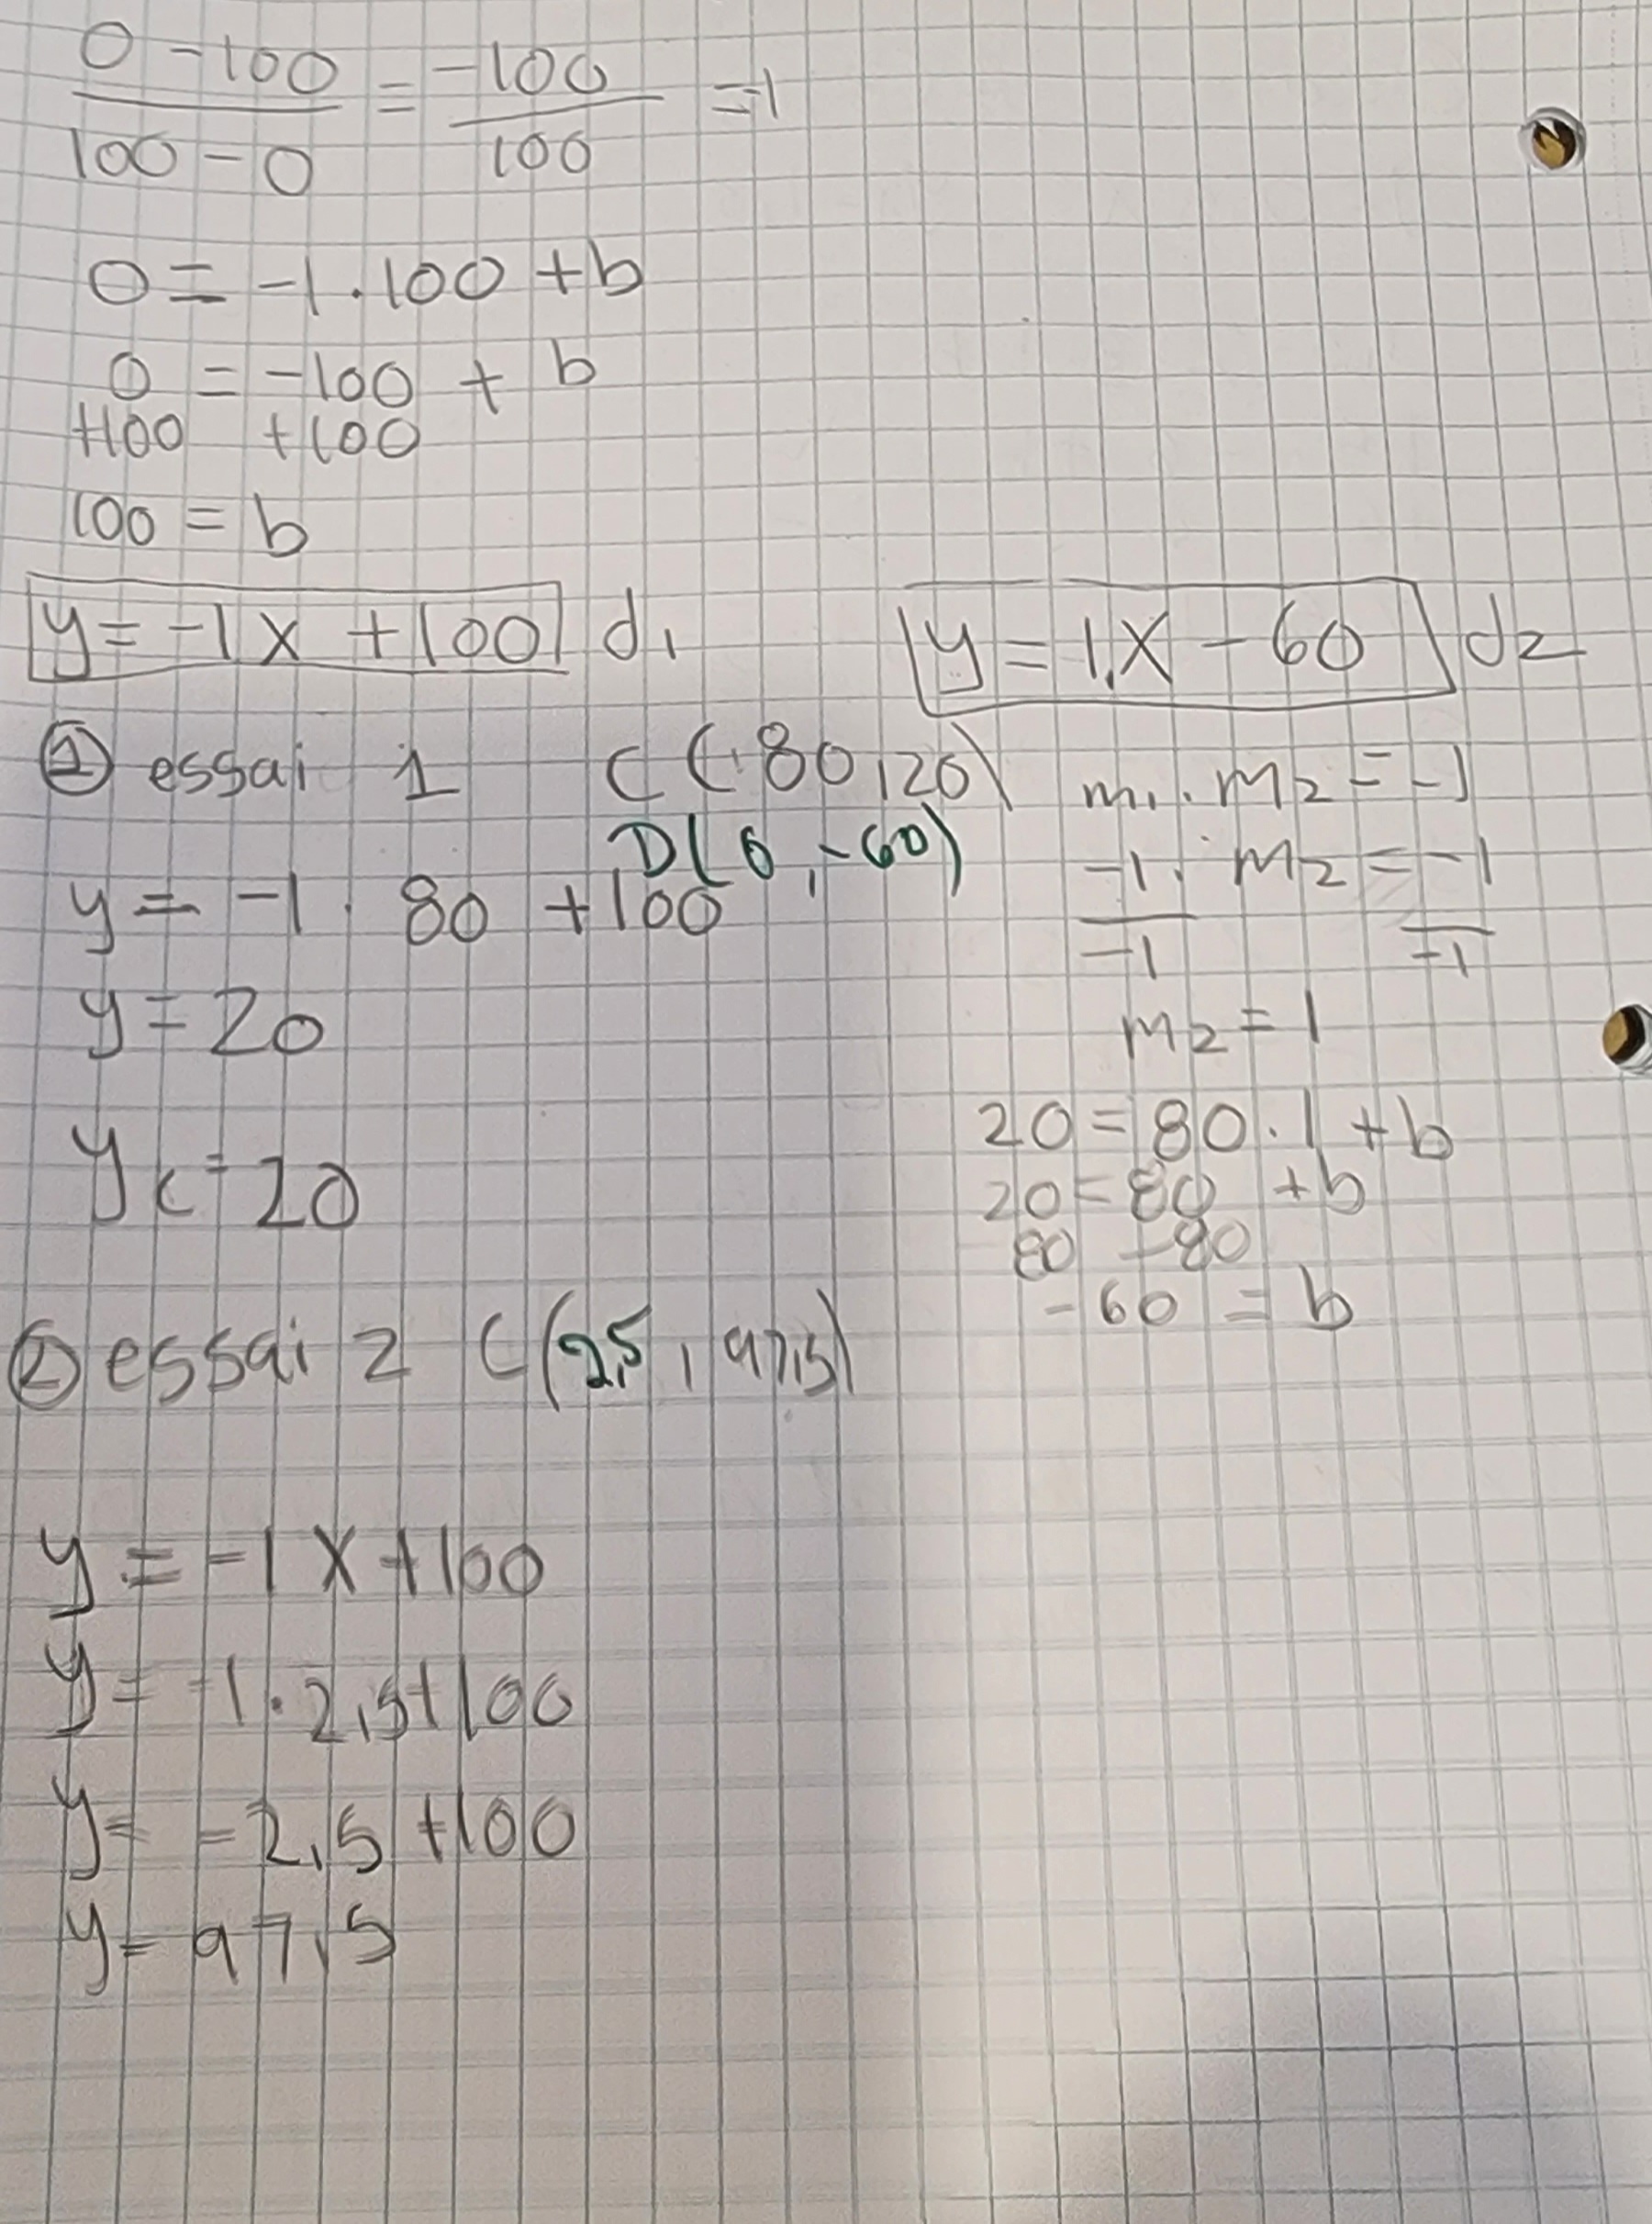 0 - 100 = -100 = -1
100 - 0 100
0 = -1 . 100 + b
0 = -100 + b
+100 +100
100 = b
y = -1 x + 100 d1
y = 1.x - 60 d2
① essai 1 C (80,20)
D(0,-60)
y = -1 . 80 + 100
y = 20
yc = 20
m1 . m2 = -1
-1 . m2 = -1
-1 -1
m2 = 1
20 = 80 . 1 + b
20 = 80 + b
80 -80
-60 = b
② essai 2 C(2,5 , 97,5)
y = -1 x + 100
y = -1 . 2,5 + 100
y = -2,5 + 100
y = 97,5